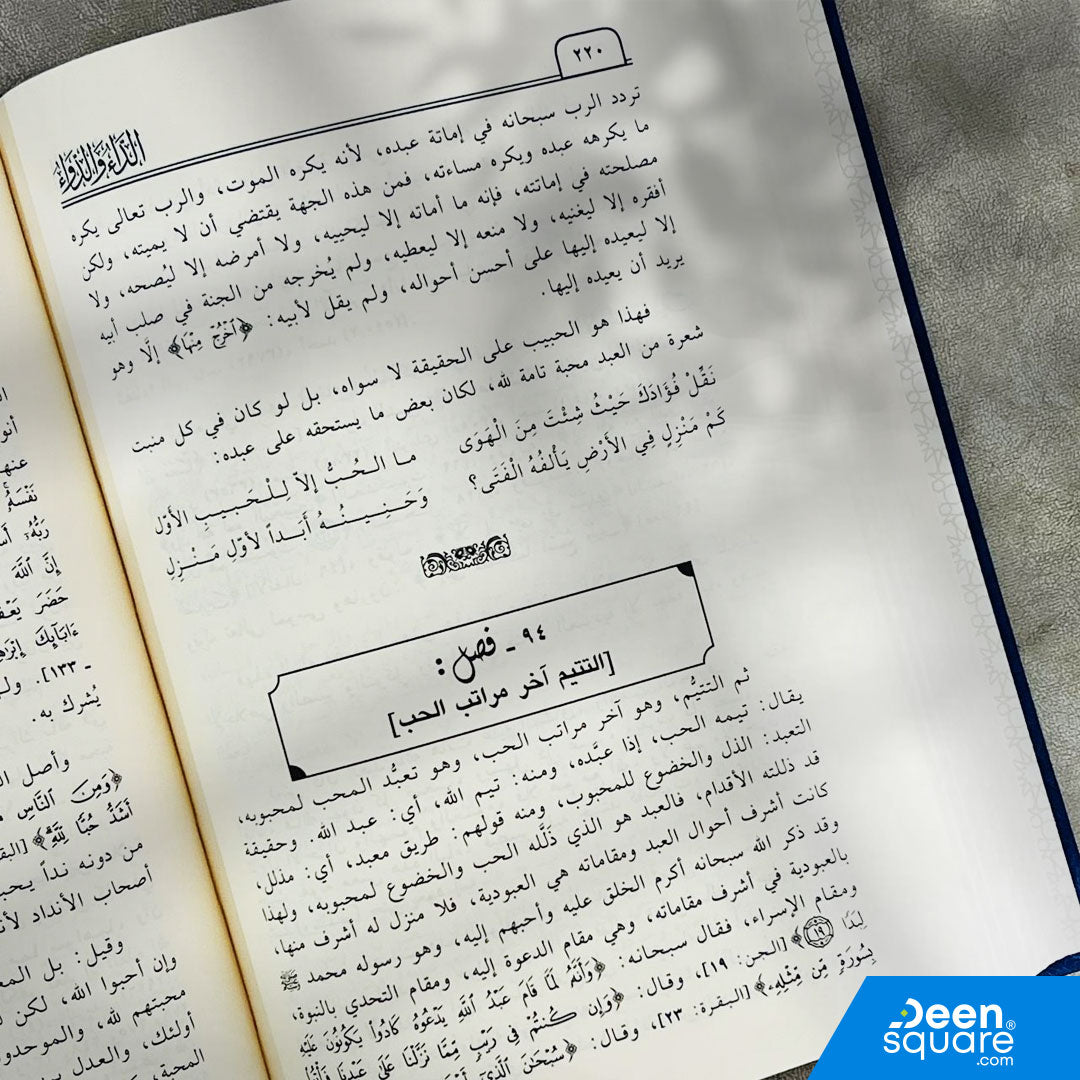 ٢٢٠
الدَّاءُ وَالدَّوَاءُ
تردد الرب سبحانه في إماتة عبده، لأنه يكره الموت، والرب تعالى يكره
ما يكرهه عبده ويكره مساءته، فمن هذه الجهة يقتضي أن لا يميته، ولكن
مصلحته في إماتته، فإنه ما أماته إلا ليحييه، ولا أمرضه إلا ليُصحه، ولا
أفقره إلا ليغنيه، ولا منعه إلا ليعطيه، ولم يُخرجه من الجنة في صلب أبيه
إلا ليعيده إليها على أحسن أحواله، ولم يقل لأبيه: ﴿ٱخْرُجْ مِنْهَا﴾ إلَّا وهو
يريد أن يعيده إليها.
فهذا هو الحبيب على الحقيقة لا سواه، بل لو كان في كل منبت
شعرة من العبد محبة تامة لله، لكان بعض ما يستحقه على عبده:
نَقِّلْ فُؤَادَكَ حَيْثُ شِئْتَ مِنَ الْهَوَى ما الـحُبُّ إلاّ لِلْحَبيبِ الأوّلِ
كَمْ مَنْزِلٍ فِي الأَرْضِ يَأْلفُهُ الْفَتَى؟ وَحَنِينُهُ أَبَداً لأوّلِ مَنْزِلِ
٩٤ ـ فصل:
[التتيم آخر مراتب الحب]
ثم التتيُّم، وهو آخر مراتب الحب، وهو تعبُّد المحب لمحبوبه،
يقال: تيمه الحب، إذا عبَّده، ومنه: تيم الله، أي: عبد الله. وحقيقة
التعبد: الذل والخضوع للمحبوب، ومنه قولهم: طريق معبد، أي: مذلل،
قد ذللته الأقدام، فالعبد هو الذي ذَلَّله الحب والخضوع لمحبوبه، ولهذا
كانت أشرف أحوال العبد ومقاماته هي العبودية، فلا منزل له أشرف منها،
وقد ذكر الله سبحانه أكرم الخلق عليه وأحبهم إليه، وهو رسوله محمد ﷺ
بالعبودية في أشرف مقاماته، وهي مقام الدعوة إليه، ومقام التحدي بالنبوة،
ومقام الإسراء، فقال سبحانه: ﴿وَأَنَّهُ لَمَّا قَامَ عَبْدُ ٱللَّهِ يَدْعُوهُ كَادُوا۟ يَكُونُونَ عَلَيْهِ
لِبَدًا ١٩﴾ [الجن: ١٩]، وقال: ﴿وَإِن كُنتُمْ فِي رَيْبٍ مِّمَّا نَزَّلْنَا عَلَىٰ عَبْدِنَا فَأْتُوا۟
بِسُورَةٍ مِّن مِّثْلِهِۦ﴾ [البقرة: ٢٣]، وقال: ﴿سُبْحَٰنَ ٱلَّذِىٓ
عنها
نَفْسَهُ
رَبُّهُۥ
إِنَّ ٱللَّهَ
حَضَرَ
ءَابَآئِكَ
ـ ١٣٣].
يُشرك به.
وأصل
﴿وَمِنَ ٱلنَّاسِ
أَشَدُّ حُبًّا لِّلَّهِ﴾
من دونه نداً
أصحاب الأنداد
وقيل: بل
وإن أحبوا الله، لكن
محبتهم لله،
أولئك، والعدل
المحبة،
Deen®
square
.com